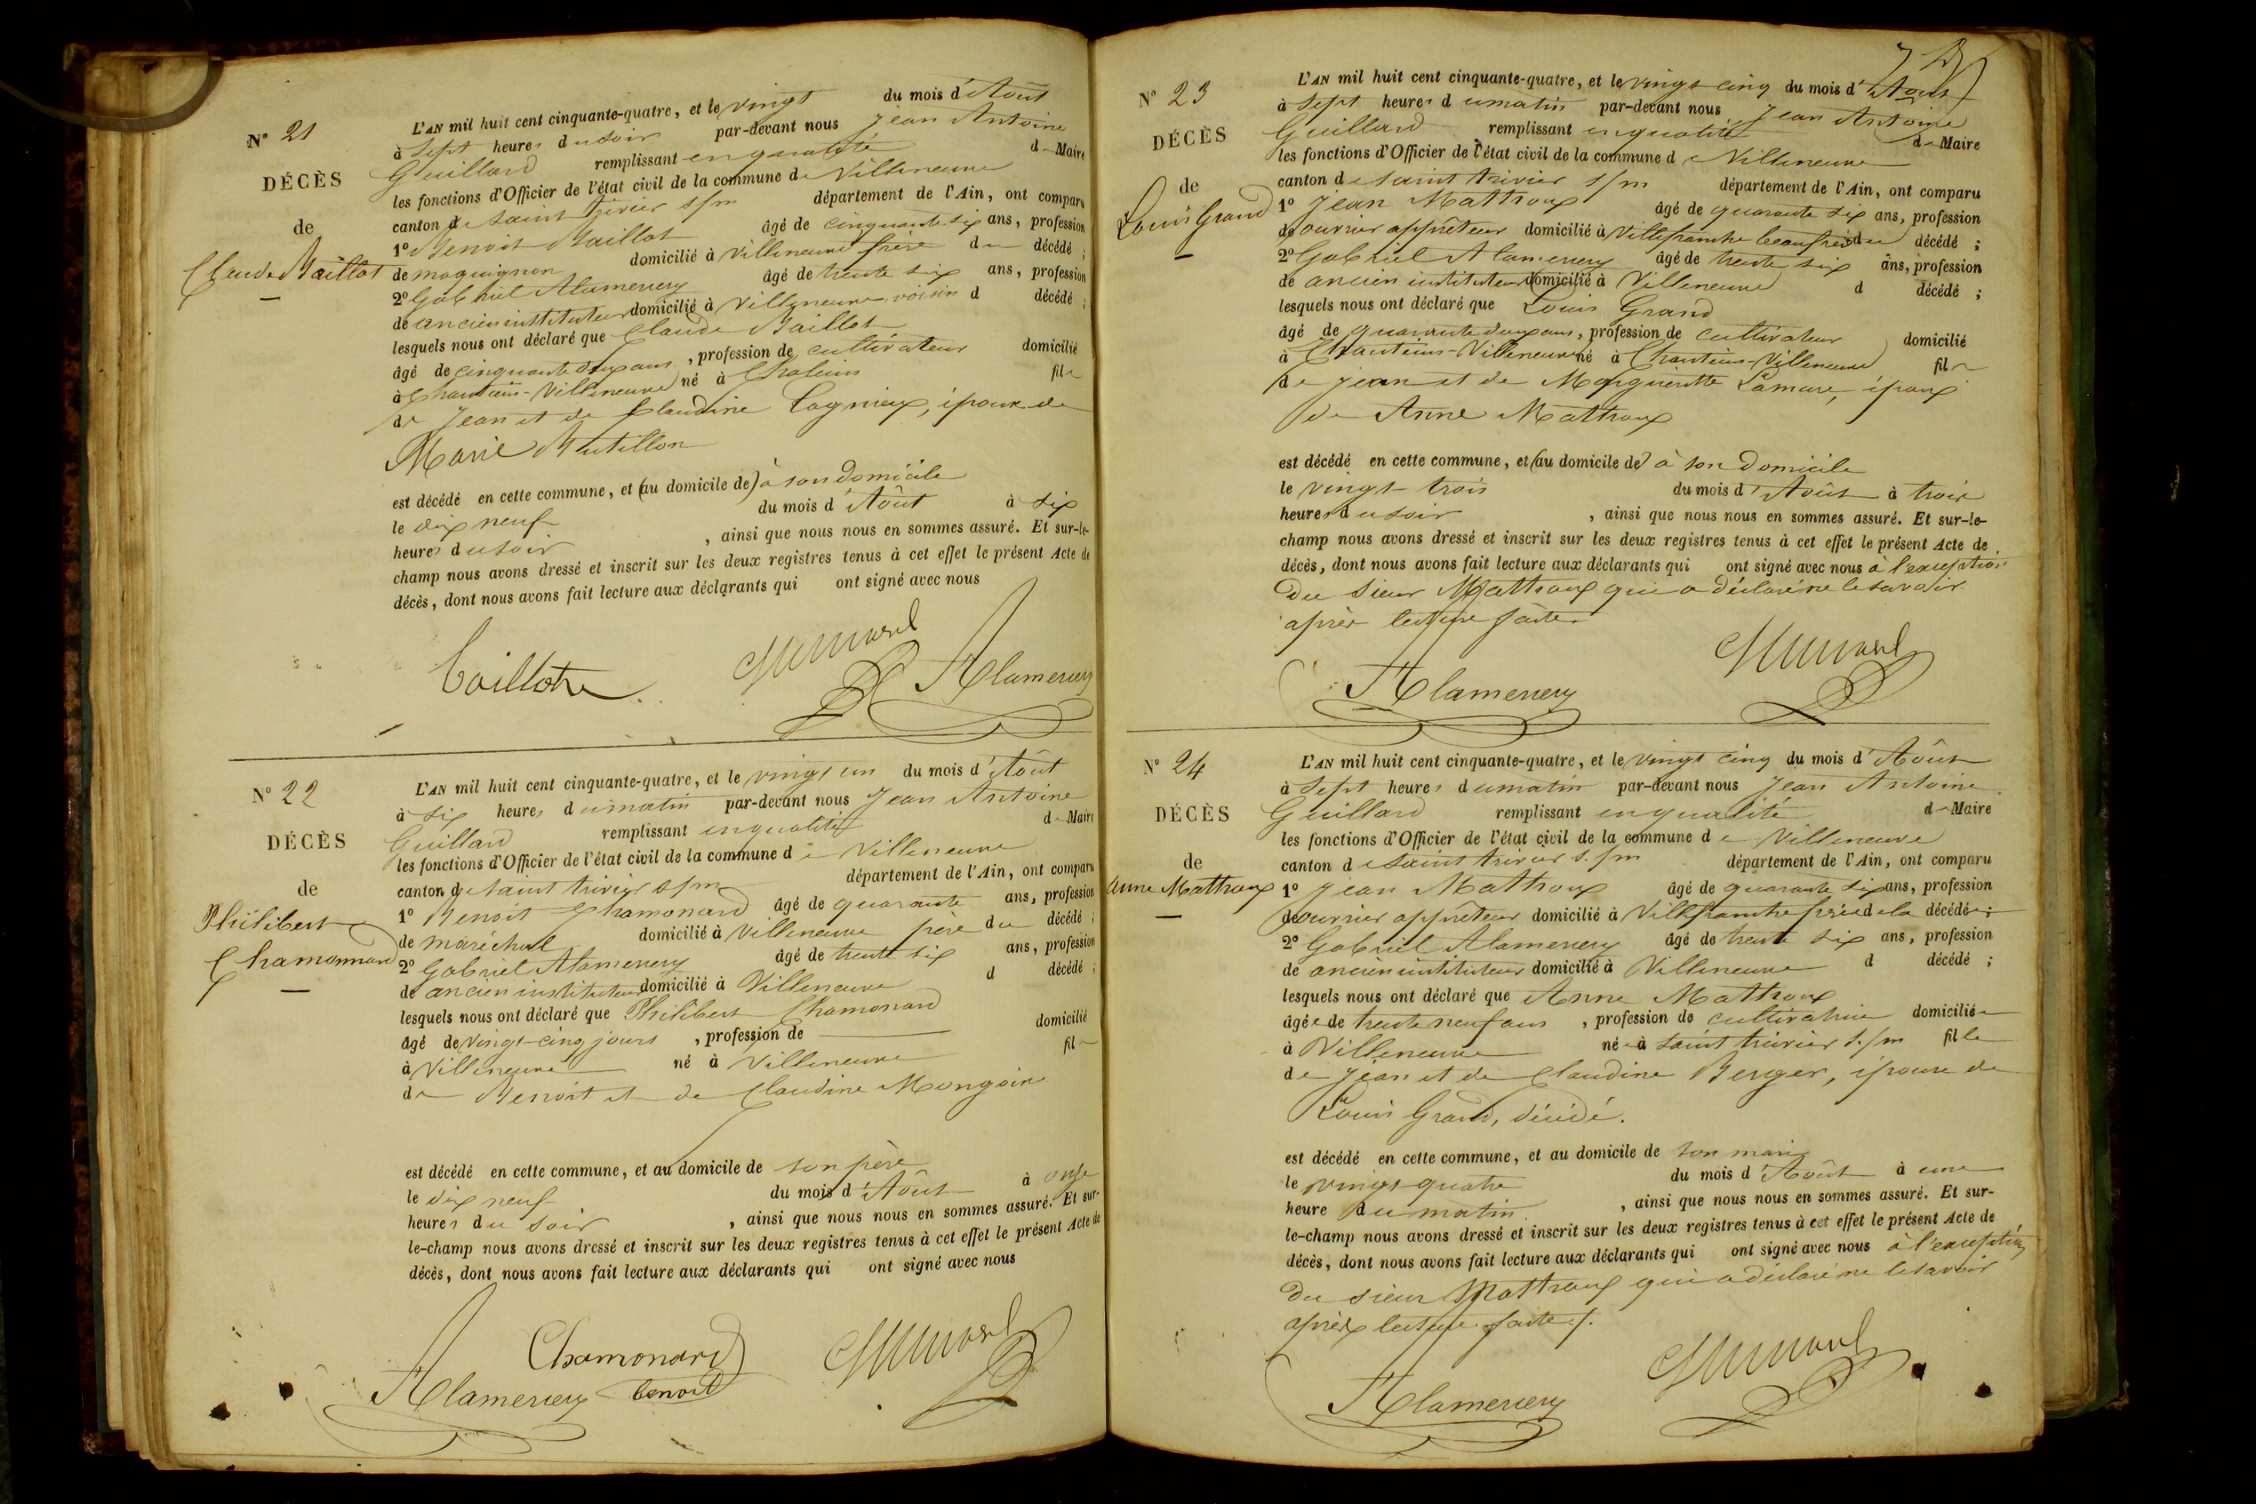 N° 21
DÉCÈS
de
Claude Baillot
L'AN mil huit cent cinquante-quatre, et le vingt du mois d'Août
à sept heures du soir par-devant nous Jean Antoine
Guillard remplissant en qualité de Maire
les fonctions d'Officier de l'état civil de la commune de Villeneuve
canton de Saint trivier s/m département de l'Ain, ont comparu
1° Benoit Baillot âgé de cinquante six ans, profession
de maquignon domicilié à Villeneuve frère du décédé ;
2° Gabriel Alamercery âgé de trente six ans, profession
de ancien instituteur domicilié à Villeneuve voisin d décédé ;
lesquels nous ont déclaré que Claude Baillot
âgé de cinquante ans, profession de cultivateur domicilié
à Chanteins-Villeneuve né à Chaleins fils
de Jean et de Claudine Cognieux, époux de
Marie Butillon
est décédé en cette commune, et (au domicile de) à son domicile
le dix neuf du mois d'Août à six
heures du soir, ainsi que nous nous en sommes assuré. Et sur-le-
champ nous avons dressé et inscrit sur les deux registres tenus à cet effet le présent Acte de
décès, dont nous avons fait lecture aux déclarants qui ont signé avec nous
Guillard
Alamercery
N° 22
DÉCÈS
de
Philibert
Chamonard
L'AN mil huit cent cinquante-quatre, et le vingt un du mois d'Août
à six heures du matin par-devant nous Jean Antoine
Guillard remplissant en qualité de Maire
les fonctions d'Officier de l'état civil de la commune de Villeneuve
canton de Saint trivier s/m département de l'Ain, ont comparu
1° Benoit Chamonard âgé de quarante ans, profession
de maréchal domicilié à Villeneuve père du décédé ;
2° Gabriel Alamercery âgé de trente six ans, profession
de ancien instituteur domicilié à Villeneuve d décédé ;
lesquels nous ont déclaré que Philibert Chamonard
âgé de vingt-cinq jours, profession de domicilié
à Villeneuve né à Villeneuve fils
de Benoit et de Claudine Mongoin
est décédé en cette commune, et au domicile de son père
le dix neuf du mois d'Août à onze
heures du soir, ainsi que nous nous en sommes assuré. Et sur-
le-champ nous avons dressé et inscrit sur les deux registres tenus à cet effet le présent Acte de
décès, dont nous avons fait lecture aux déclarants qui ont signé avec nous
Chamonard
benoit
Alamercery
Guillard
N° 23
DÉCÈS
de
Louis Grand
L'AN mil huit cent cinquante-quatre, et le vingt cinq du mois d'Août
à sept heures du matin par-devant nous Jean Antoine
Guillard remplissant en qualité de Maire
les fonctions d'Officier de l'état civil de la commune de Villeneuve
canton de Saint trivier s/m département de l'Ain, ont comparu
1° Jean Mathoux âgé de quarante six ans, profession
de ouvrier apprêteur domicilié à Villefranche beaufrère du décédé ;
2° Gabriel Alamercery âgé de trente six ans, profession
de ancien instituteur domicilié à Villeneuve d décédé ;
lesquels nous ont déclaré que Louis Grand
âgé de quarante deux ans, profession de cultivateur domicilié
à Chanteins-Villeneuve né à Chanteins-Villeneuve fils
de Jean et de Marguerite Lamure, époux
de Anne Mathoux
est décédé en cette commune, et (au domicile de) à son domicile
le vingt trois du mois d'Août à trois
heures du soir, ainsi que nous nous en sommes assuré. Et sur-le-
champ nous avons dressé et inscrit sur les deux registres tenus à cet effet le présent Acte de
décès, dont nous avons fait lecture aux déclarants qui ont signé avec nous à l'exception
du sieur Mathoux qui a déclaré ne le savoir
après lecture faite
Alamercery
Guillard
N° 24
DÉCÈS
de
Anne Mathoux
L'AN mil huit cent cinquante-quatre, et le vingt cinq du mois d'Août
à sept heures du matin par-devant nous Jean Antoine
Guillard remplissant en qualité de Maire
les fonctions d'Officier de l'état civil de la commune de Villeneuve
canton de Saint trivier s./m département de l'Ain, ont comparu
1° Jean Mathoux âgé de quarante six ans, profession
de ouvrier apprêteur domicilié à Villefranche frère de la décédée ;
2° Gabriel Alamercery âgé de trente six ans, profession
de ancien instituteur domicilié à Villeneuve d décédé ;
lesquels nous ont déclaré que Anne Mathoux
âgée de trente neuf ans, profession de cultivatrice domiciliée
à Villeneuve née à Saint trivier s./m fille
de Jean et de Claudine Berger, épouse de
Louis Grand, décédé.
est décédé en cette commune, et au domicile de son mari
le vingt quatre du mois d'Août à une
heure du matin, ainsi que nous nous en sommes assuré. Et sur-
le-champ nous avons dressé et inscrit sur les deux registres tenus à cet effet le présent Acte de
décès, dont nous avons fait lecture aux déclarants qui ont signé avec nous à l'exception
du sieur Mathoux qui a déclaré ne le savoir
après lecture faite.
Alamercery
Guillard